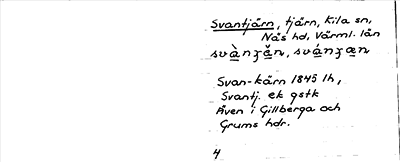 Svantjärn, tjärn, Kila sn,
Näs hd, Värml. län
Svan-kärn 1845 lh,
Svantj. ek gstk
Även i Gillberga och
Grums hdr.
4